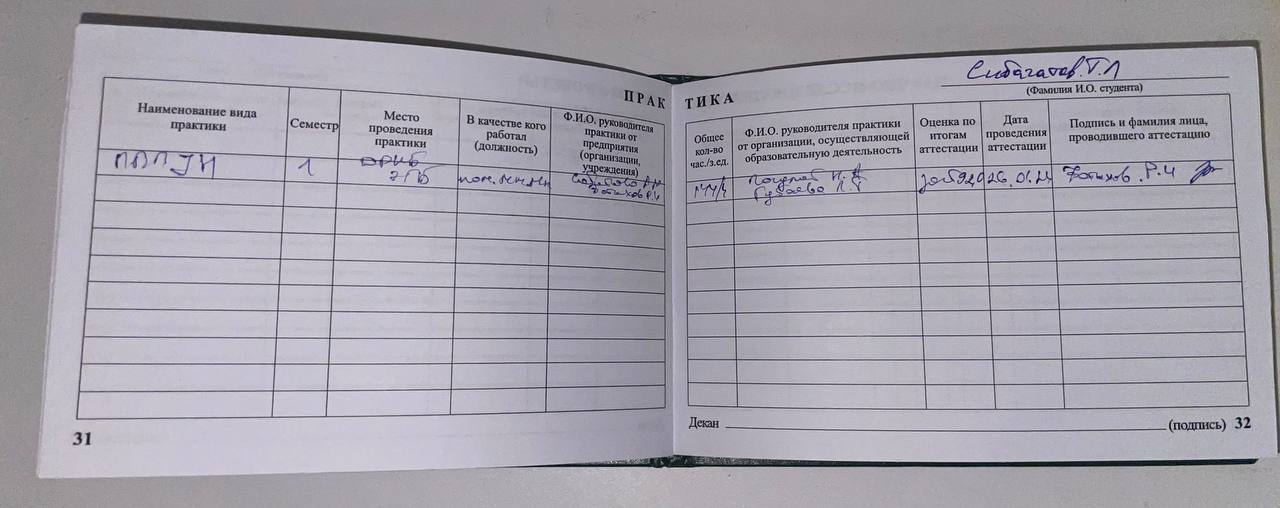 ПРАКТИКА
Сибагатов.Т.Л
(Фамилия И.О. студента)
Наименование вида
практики
Семестр
Место
проведения
практики
В качестве кого
работал
(должность)
Ф.И.О. руководителя
практики от
предприятия
(организации,
учреждения)
Общее
кол-во
час./з.ед.
Ф.И.О. руководителя практики
от организации, осуществляющей
образовательную деятельность
Оценка по
итогам
аттестации
Дата
проведения
аттестации
Подпись и фамилия лица,
проводившего аттестацию
1
Фатихов Р.И
Губаева Л.
26.01.24
Фатихов Р.И
31
Декан
(подпись) 32